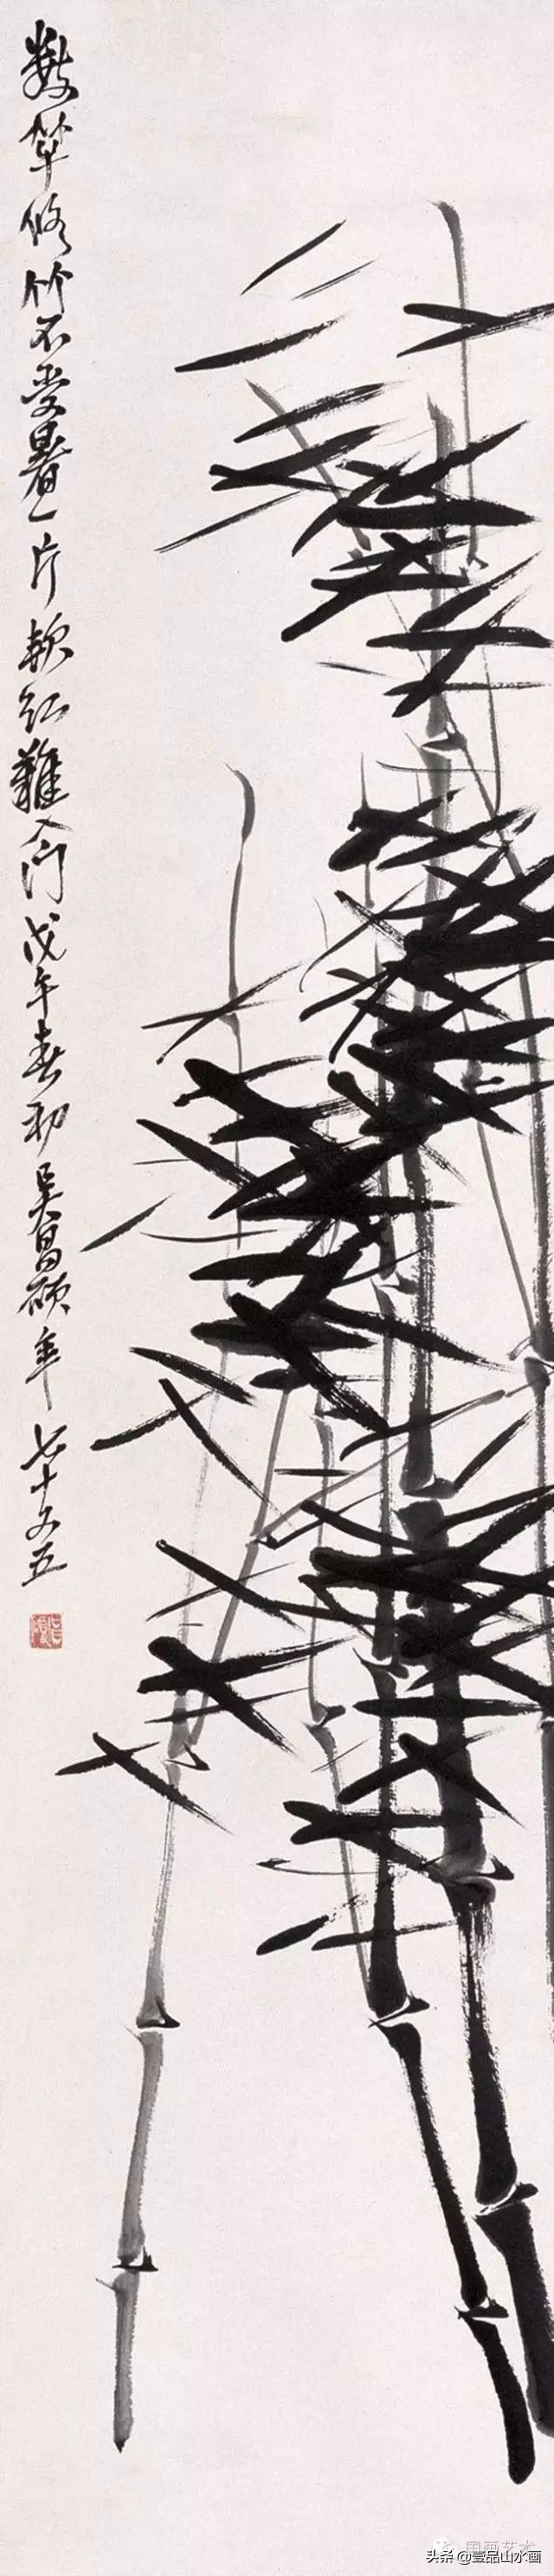 數竿修竹不受暑一片軟紅難入門戊午春初吳昌碩年七十又五
国画艺术
头条 @壹品山水画